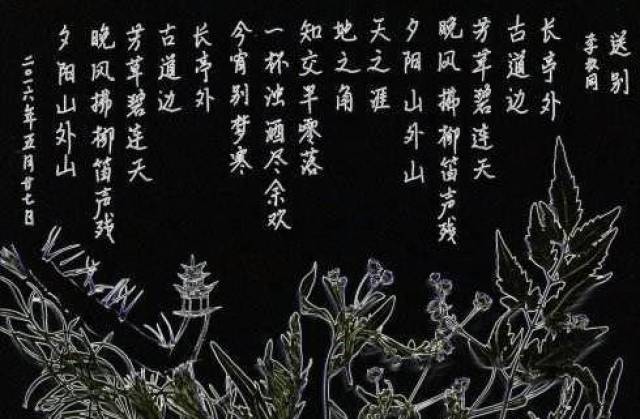 送别
李叔同
长亭外
古道边
芳草碧连天
晚风拂柳笛声残
夕阳山外山
天之涯
地之角
知交半零落
一杯浊酒尽余欢
今宵别梦寒
长亭外
古道边
芳草碧连天
晚风拂柳笛声残
夕阳山外山
二〇一六年五月廿七日